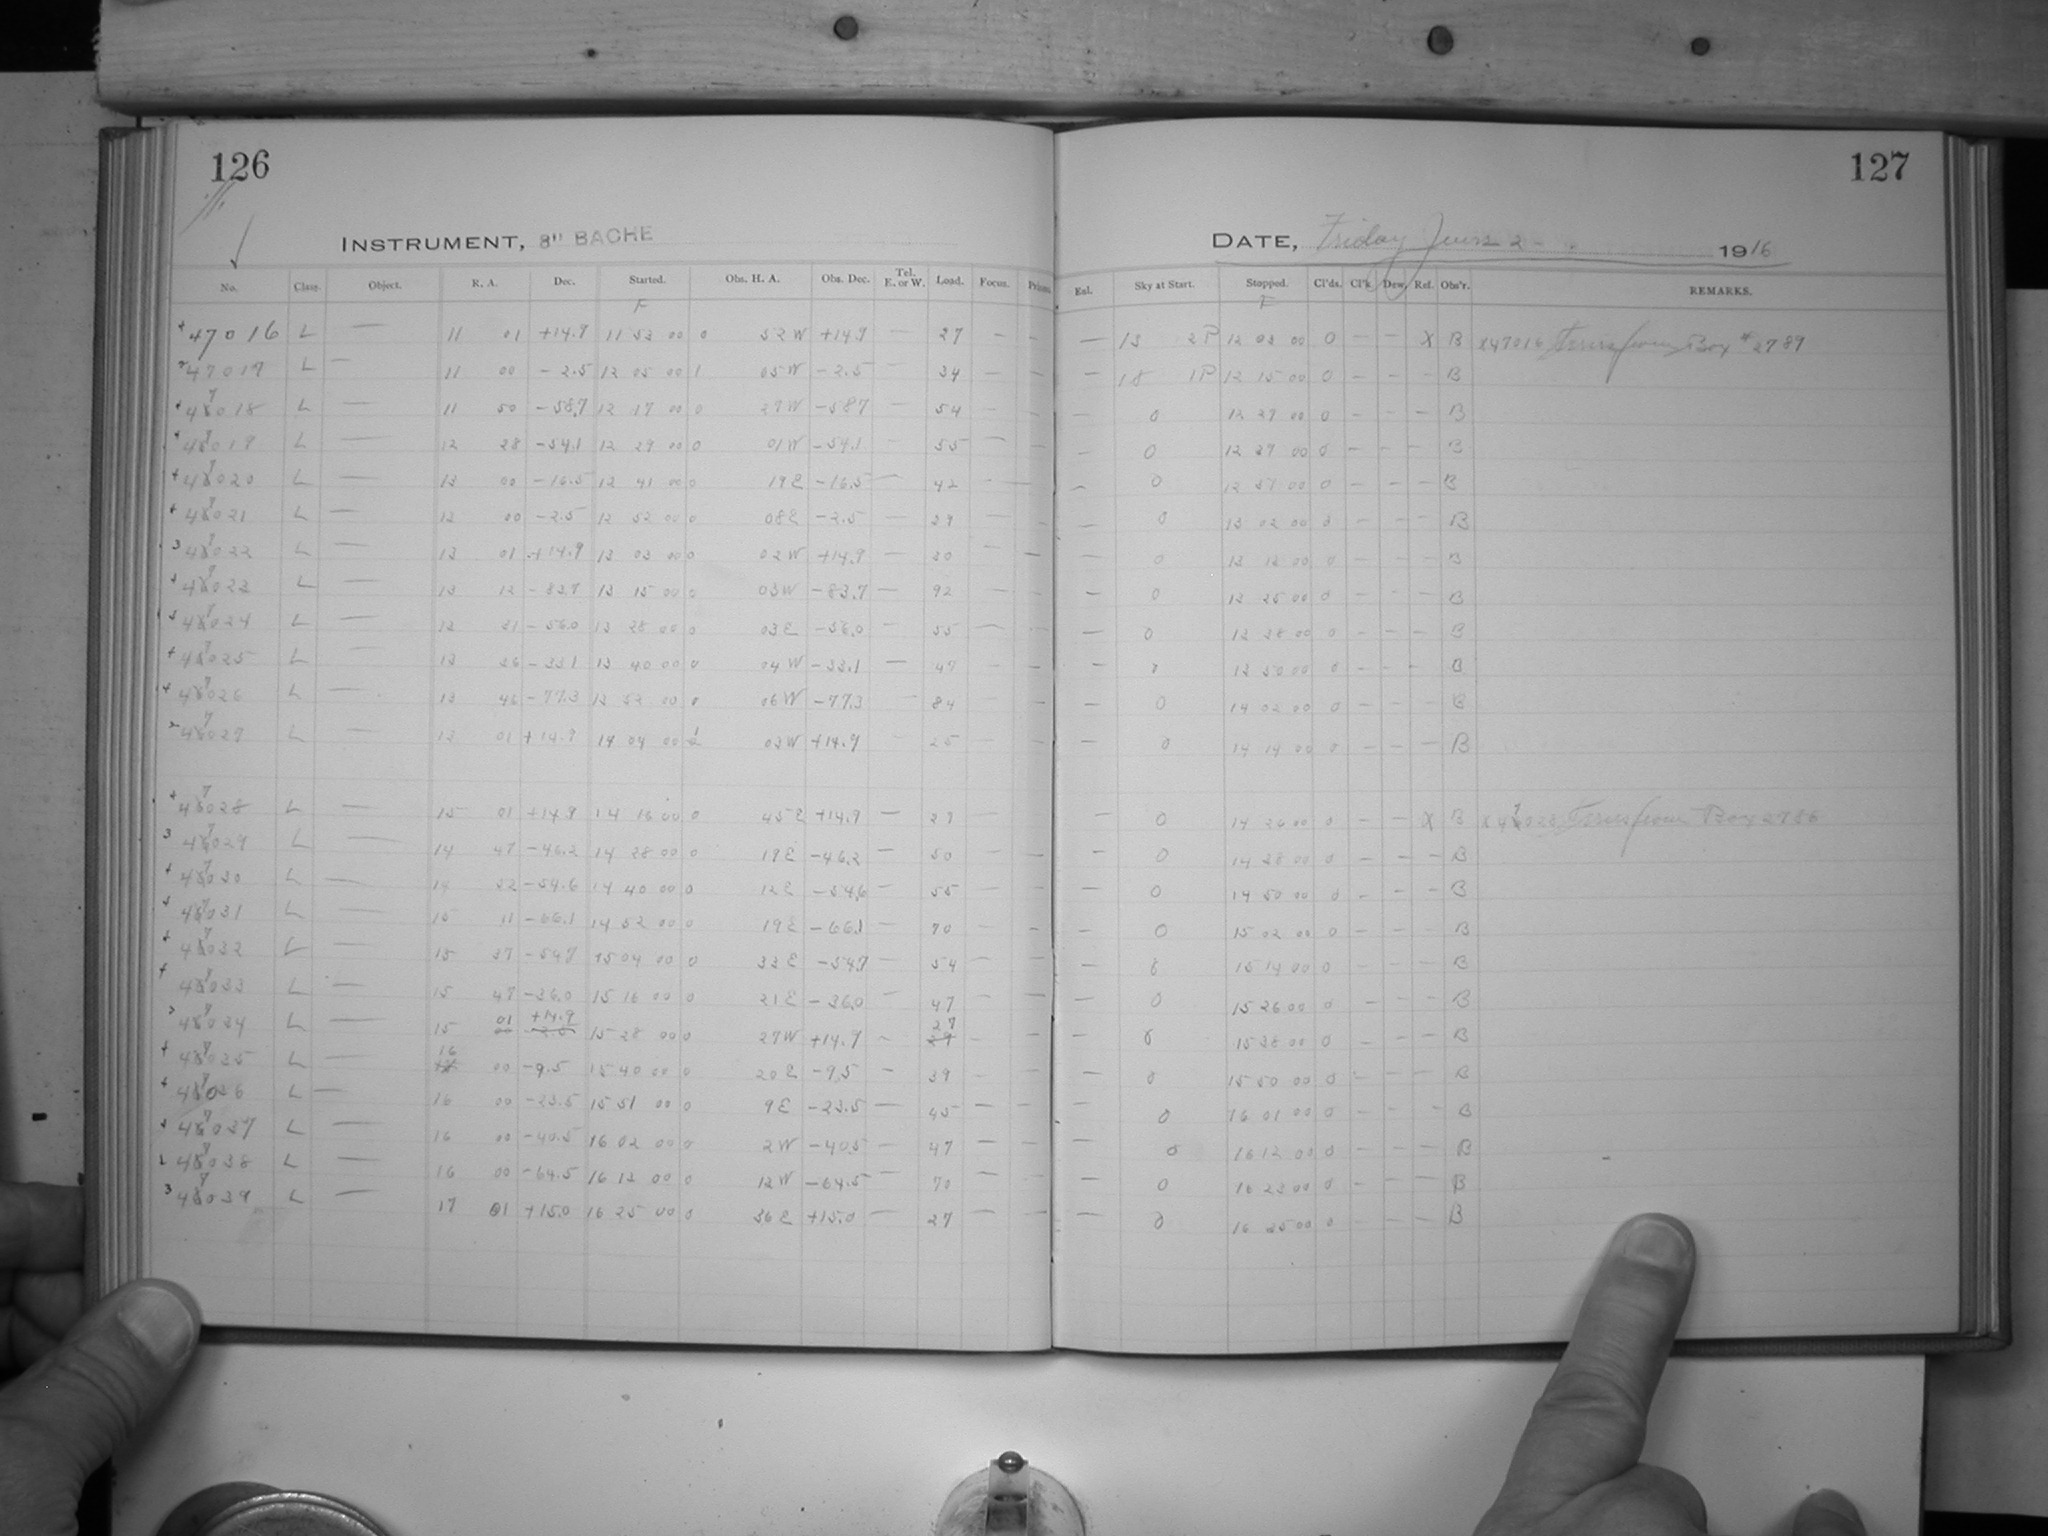 126
127
INSTRUMENT, 8" BACHE
DATE, Friday June 2 - 1916
No. Class. Object. R. A. Dec. Started. Obs. H. A. Obs. Dec. Tel. E. or W. Load. Focus. Enl. Sky at Start. Stopped. Cl'ds. Cl'k. Dew. Ref. Obs'r. REMARKS.
F F
47016 L — 11 01 +14.9 11 53 00 0 52W +14.9 — 27 — — — 13 2P 12 03 00 0 — — X B X47016 from Box # 2789
47017 L — 11 00 -2.5 12 05 00 1 05W -2.5 — 34 — — — 18 1P 12 15 00 0 — — — B
47018 L — 11 50 -58.7 12 17 00 0 27W -58.7 — 54 — — — 0 12 27 00 0 — — — B
47019 L — 12 28 -54.1 12 29 00 0 01W -54.1 — 55 — — — 0 12 37 00 0 — — — B
47020 L — 13 00 -16.5 12 41 00 0 19E -16.5 — 42 — — — 0 12 51 00 0 — — — B
47021 L — 13 00 -2.5 12 52 00 0 08E -2.5 — 39 — — — 0 13 02 00 0 — — — B
47022 L — 13 01 +14.9 13 03 00 0 02W +14.9 — 30 — — — 0 13 13 00 0 — — — B
47023 L — 13 12 -83.7 13 15 00 0 03W -83.7 — 92 — — — 0 13 25 00 0 — — — B
47024 L — 13 31 -56.0 13 28 00 0 03E -56.0 — 55 — — — 0 13 38 00 0 — — — B
47025 L — 13 36 -33.1 13 40 00 0 04W -33.1 — 47 — — — 0 13 50 00 0 — — — B
47026 L — 13 46 -77.3 13 52 00 0 06W -77.3 — 84 — — — 0 14 02 00 0 — — — B
47027 L — 13 01 +14.9 14 04 00 1 03W +14.9 — 25 — — — 0 14 14 00 0 — — — B
47028 L — 15 01 +14.9 14 16 00 0 45E +14.9 — 27 — — — 0 14 26 00 0 — — X B X47028 from Box 2786
47029 L — 14 47 -46.2 14 28 00 0 19E -46.2 — 50 — — — 0 14 38 00 0 — — — B
47030 L — 14 52 -54.6 14 40 00 0 12E -54.6 — 55 — — — 0 14 50 00 0 — — — B
47031 L — 15 11 -66.1 14 52 00 0 19E -66.1 — 70 — — — 0 15 02 00 0 — — — B
47032 L — 15 37 -54.7 15 04 00 0 33E -54.7 — 54 — — — 0 15 14 00 0 — — — B
47033 L — 15 47 -36.0 15 16 00 0 21E -36.0 — 47 — — — 0 15 26 00 0 — — — B
47034 L — 15 01 +14.9 15 28 00 0 27W +14.9 — 27 — — — 0 15 38 00 0 — — — B
47035 L — 16 00 -9.5 15 40 00 0 20E -9.5 — 39 — — — 0 15 50 00 0 — — — B
47036 L — 16 00 -23.5 15 51 00 0 9E -23.5 — 45 — — — 0 16 01 00 0 — — — B
47037 L — 16 00 -40.5 16 02 00 0 2W -40.5 — 47 — — — 0 16 12 00 0 — — — B
47038 L — 16 00 -64.5 16 13 00 0 12W -64.5 — 70 — — — 0 16 23 00 0 — — — B
47039 L — 17 01 +15.0 16 25 00 0 36E +15.0 — 27 — — — 0 16 35 00 0 — — — B